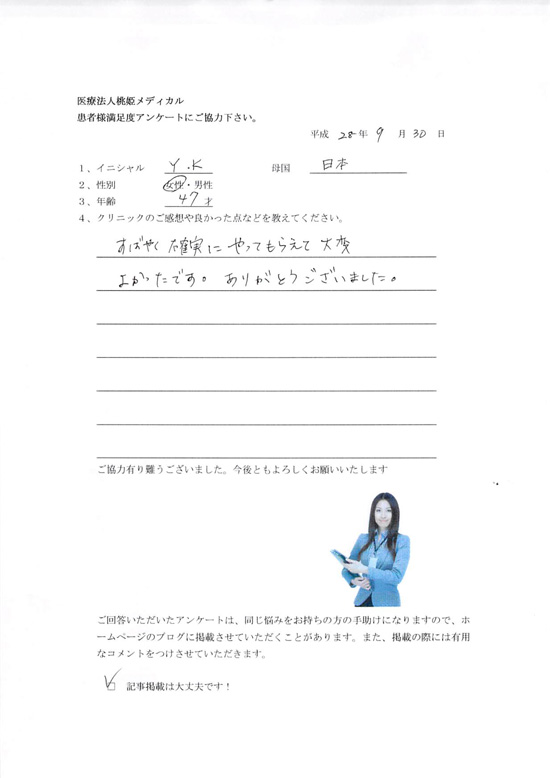 医療法人桃姫メディカル
患者様満足度アンケートにご協力下さい。
平成 28年 9 月 30 日
1、イニシャル Y.K 母国 日本
2、性別 女性・男性
3、年齢 47才
4、クリニックのご感想や良かった点などを教えてください。
すばやく確実にやってもらえて大変
よかったです。ありがとうございました。
ご協力有り難うございました。今後ともよろしくお願いいたします
ご回答いただいたアンケートは、同じ悩みをお持ちの方の手助けになりますので、ホ
ームページのブログに掲載させていただくことがあります。また、掲載の際には有用
なコメントをつけさせていただきます。
☑ 記事掲載は大丈夫です!